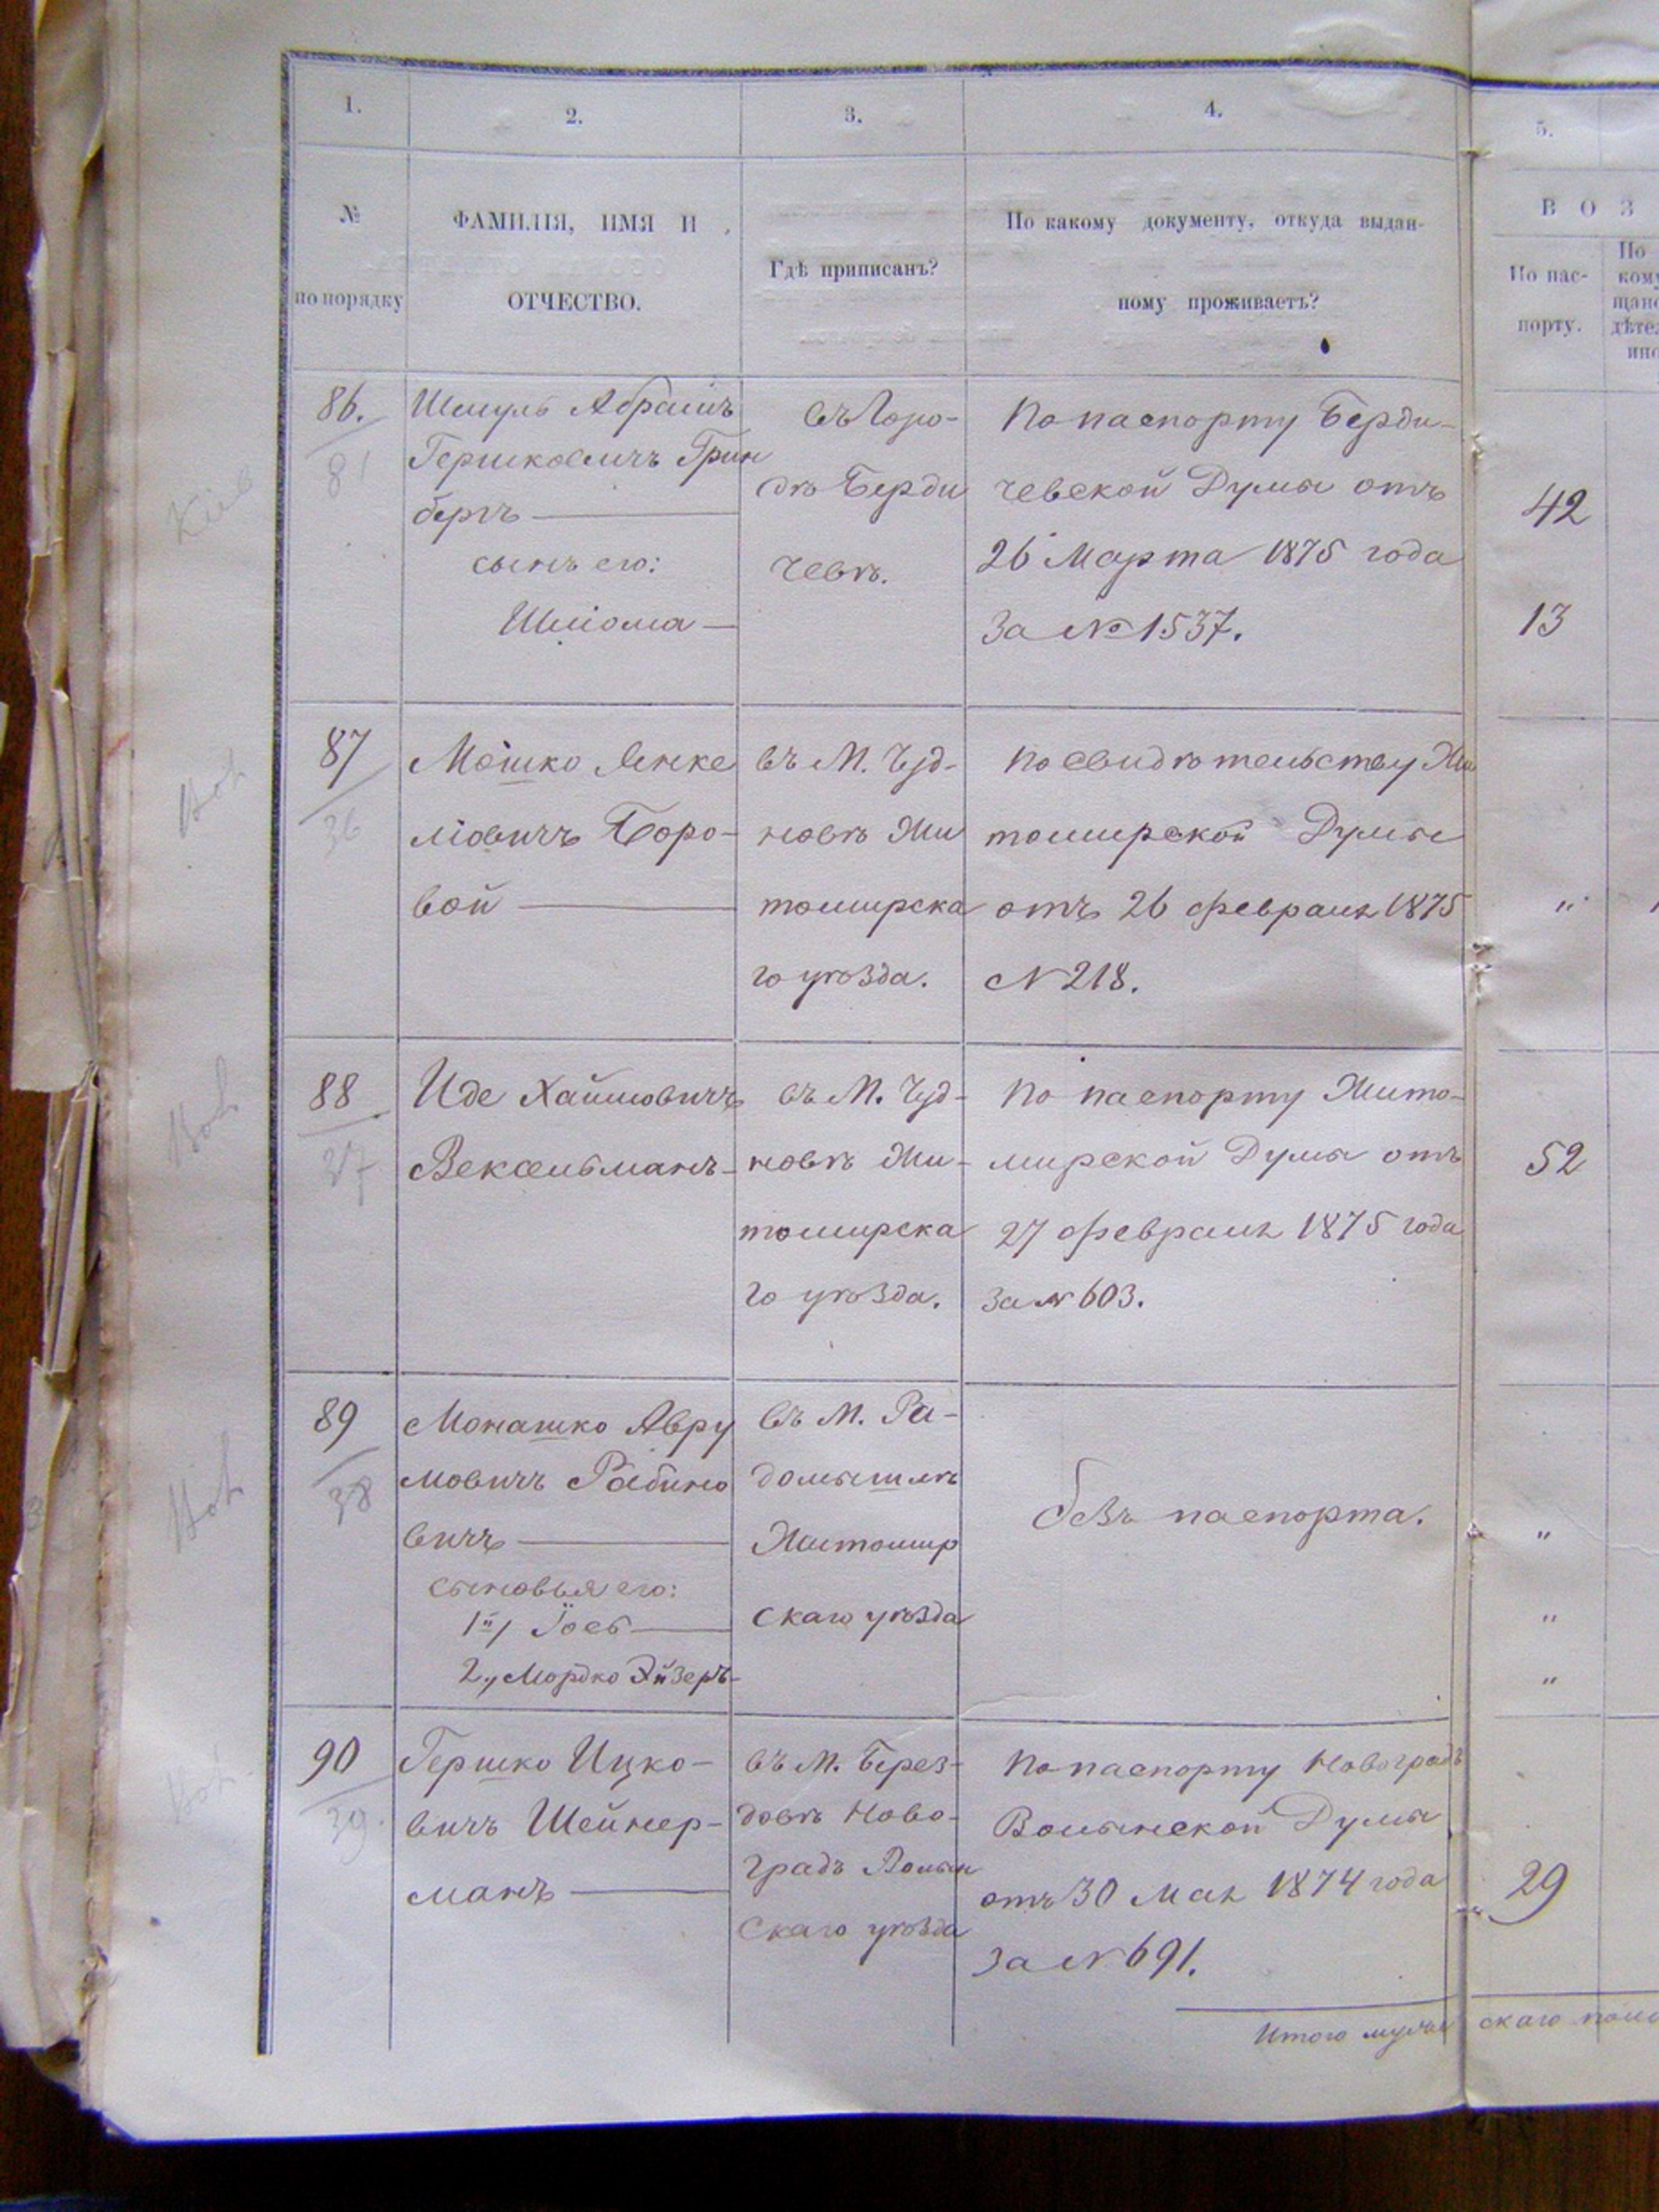 1.
2.
3.
4.
5.
№
по порядку
ФАМИЛІЯ, ИМЯ И
ОТЧЕСТВО.
Гдѣ приписанъ?
По какому документу, откуда выдан-
ному проживаетъ?
В О З
По пас-
порту.
По
ком
щан
дѣтел
ино
86.
81
Шмуль Абрамъ
Гершковичъ Грин
бергъ
сынъ его:
Шліома
въ Горо-
дѣ Берди
чевѣ.
По паспорту Берди-
чевской Думы отъ
26 Марта 1875 года
За № 1537.
42
13
87
36
Мошко Янке
ліовичъ Боро-
вой
въ М. Чуд-
новѣ Жи
томирска
го уѣзда.
По свидѣтельству Жи
томирской Думы
отъ 26 февраля 1875
N 218.
"
88
37
Иде Хаимовичъ
Вексельманъ
въ М. Чуд-
новѣ Жи-
томирска
го уѣзда.
По паспорту Жито-
мирской Думы отъ
27 февраля 1875 года
за N 603.
52
89
38
Монашко Авру
мовичъ Рабино
вичъ
сыновья его:
1й) Іось
2., Мордко Эйзеръ
въ М. Ра-
домышлѣ
Житомир
скаго уѣзда
безъ паспорта.
"
"
"
90
39
Гершко Ицко-
вичъ Шейнер-
манъ
въ М. Берез-
довѣ Ново-
градъ Волын
скаго уѣзда
По паспорту Новоградъ
Волынской Думы
отъ 30 Мая 1874 года
За N 691.
29
Итого мужескаго пола
Кіев
Вол
Вол
Вол
Вол